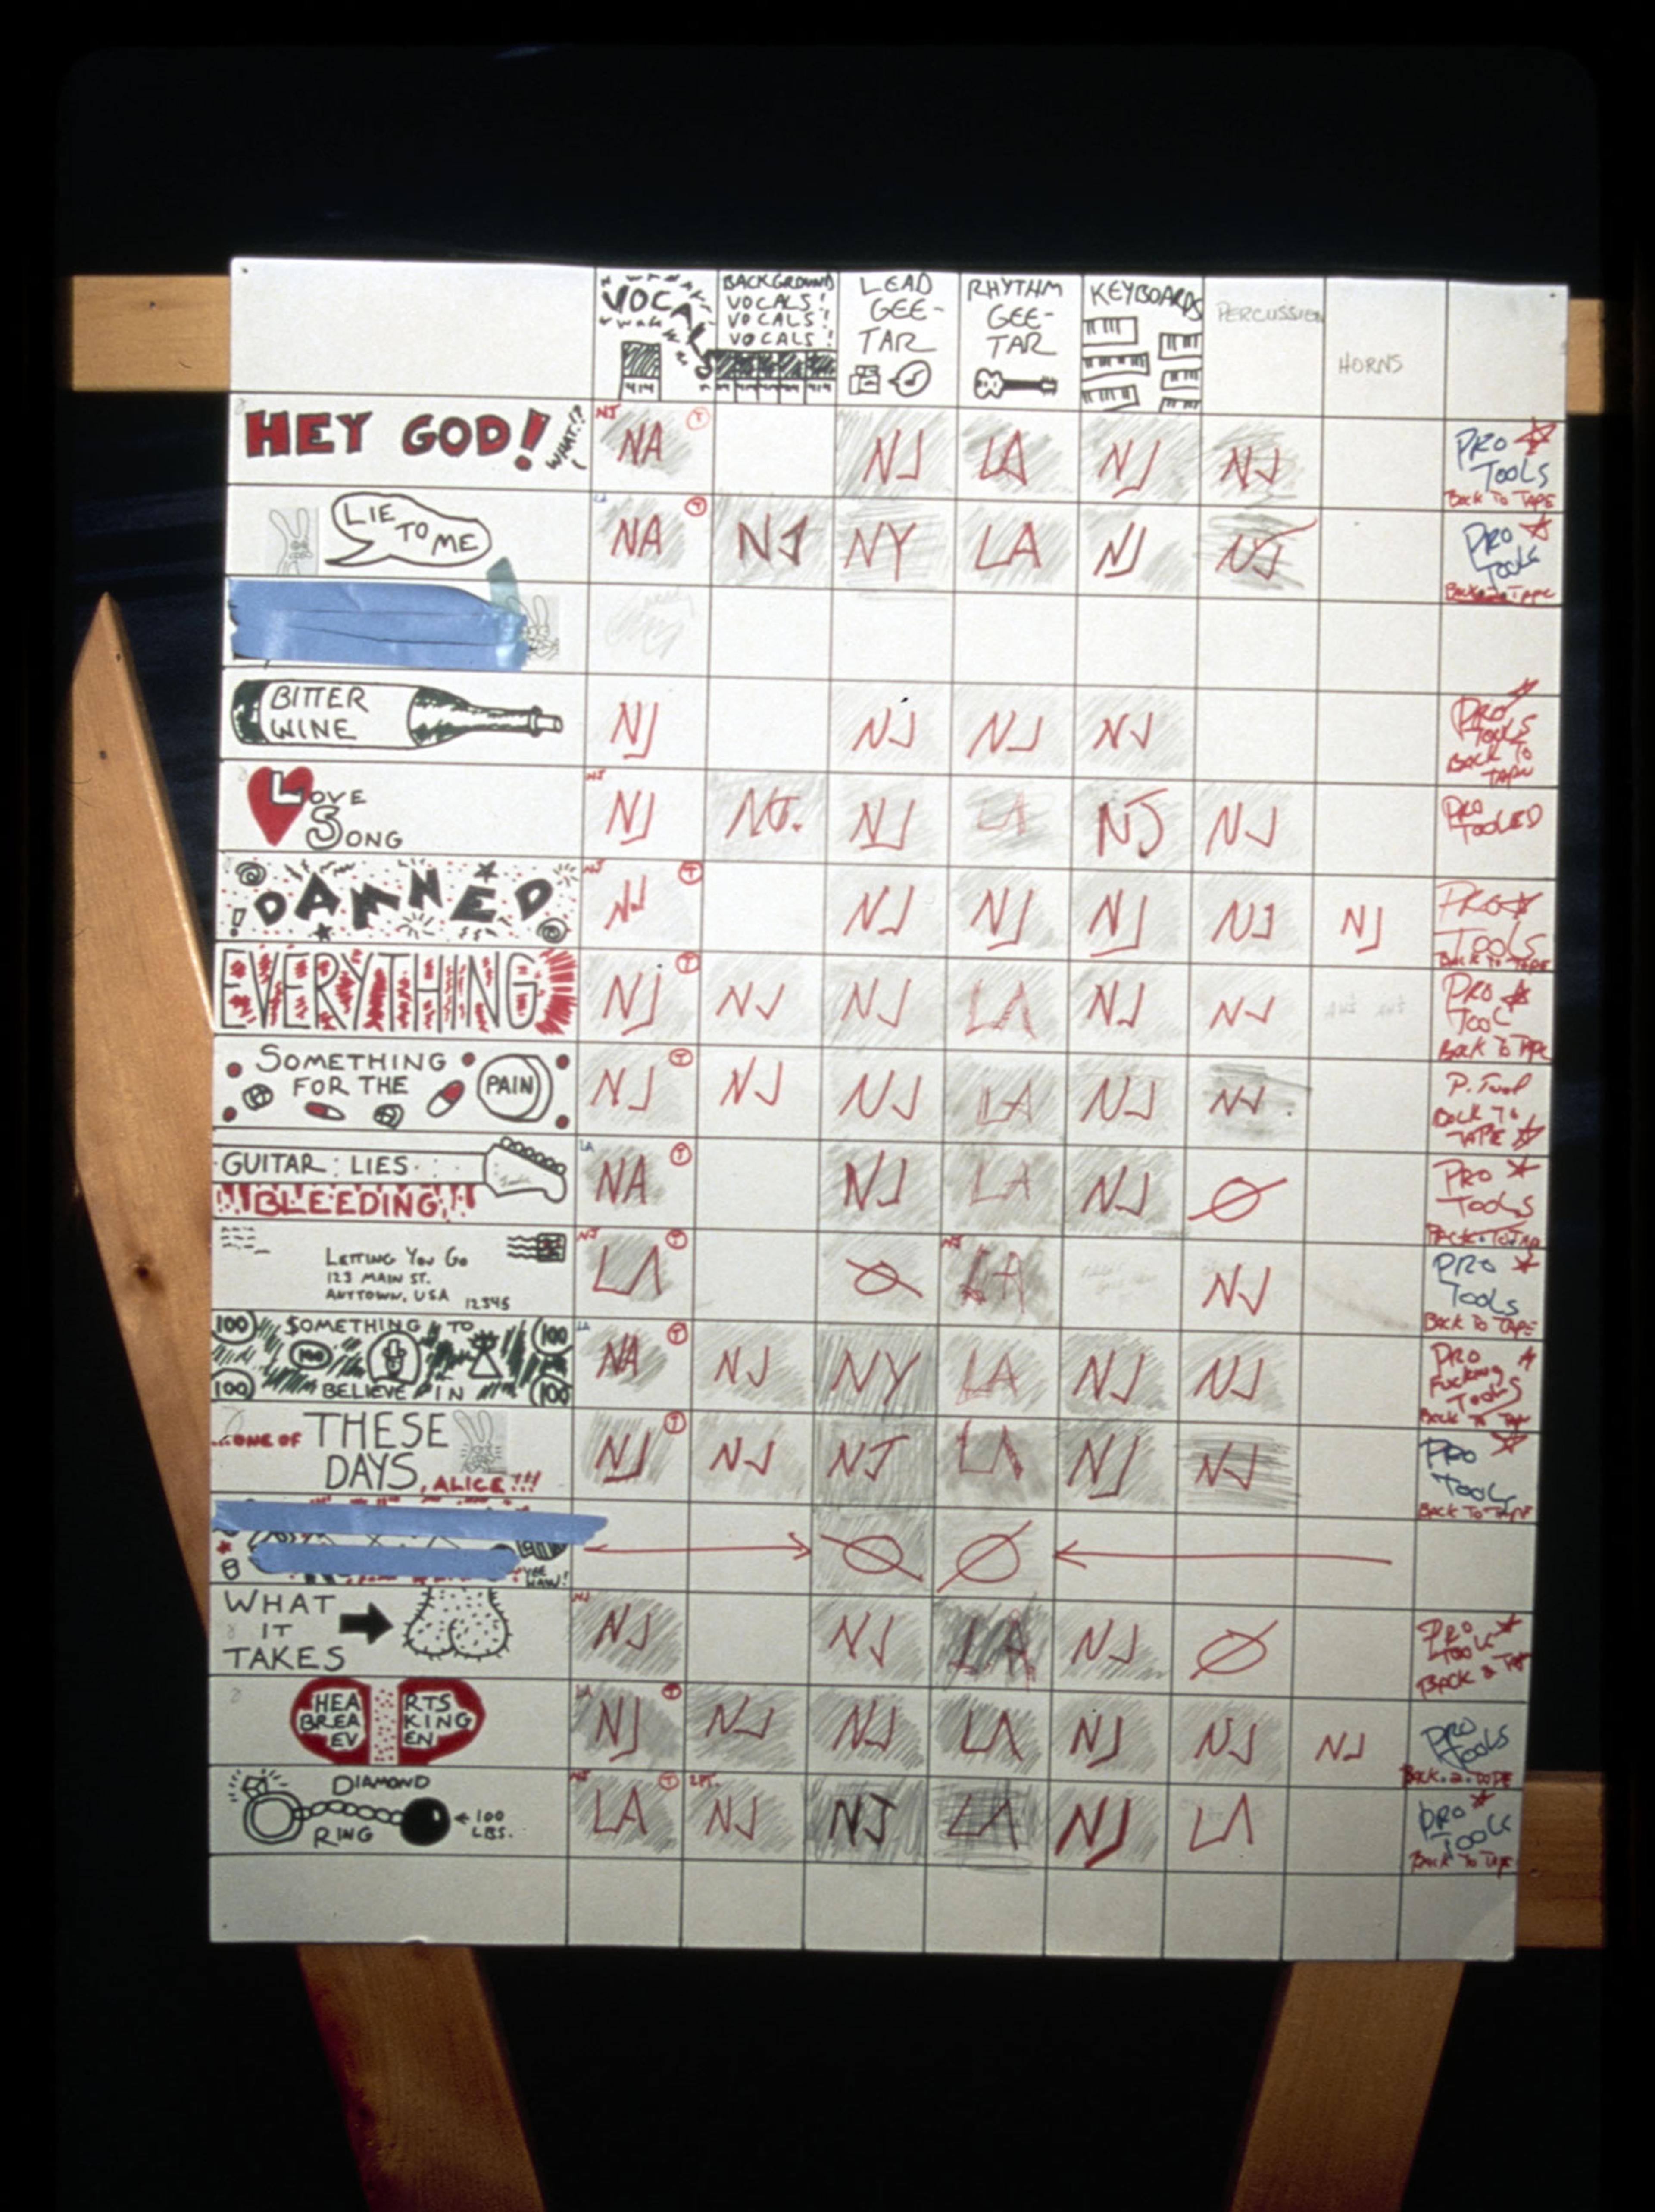 VOCALS
414
BACKGROUND
VOCALS!
VOCALS!
VOCALS!
LEAD
GEE-
TAR
RHYTHM
GEE-
TAR
KEYBOARDS
PERCUSSION
HORNS
HEY GOD! WHAT!?
NJ NA T NJ LA NJ NJ PRO
TOOLS
BACK TO TAPE
LIE
TO
ME
LA NA T NJ NY LA NJ NJ PRO
TOOLS
BACK TO TAPE
BITTER
WINE
NJ NJ NJ NJ PRO
TOOLS
BACK TO
TAPE
LOVE
SONG
NJ NJ NJ. NJ LA NJ NJ PRO
TOOLED
DAMNED
NJ NJ T NJ NJ NJ NJ NJ PRO
TOOLS
BACK TO TAPE
EVERYTHING
NJ T NJ NJ LA NJ NJ PRO
TOOL
BACK TO TAPE
SOMETHING
FOR THE PAIN
NJ T NJ NJ LA NJ NJ P. TOOL
BACK TO
TAPE
GUITAR: LIES
BLEEDING
LA NA T NJ LA NJ Ø PRO
TOOLS
BACK TO TAPE
LETTING YOU GO
123 MAIN ST.
ANYTOWN, USA 12345
NJ LA T Ø NJ LA NJ PRO
TOOLS
BACK TO TAPE
100 SOMETHING TO 100
100
100 BELIEVE IN 100
LA NA T NJ NY LA NJ NJ PRO
FUCKING
TOOLS
BACK TO TAPE
...ONE OF THESE
DAYS, ALICE!!!
NJ T NJ NJ LA NJ NJ PRO
TOOLS
BACK TO TAPE
YEE
HAW!
Ø Ø
WHAT
IT
TAKES
NJ NJ NJ LA NJ Ø PRO
TOOLS
BACK 2 TAPE
HEA RTS
BREA KING
EV EN
LA NJ T NJ NJ LA NJ NJ NJ PRO
TOOLS
BACK.2.TAPE
DIAMOND
RING
100
LBS.
NJ LA T NJ NJ LA NJ LA PRO
TOOLS
BACK TO TAPE